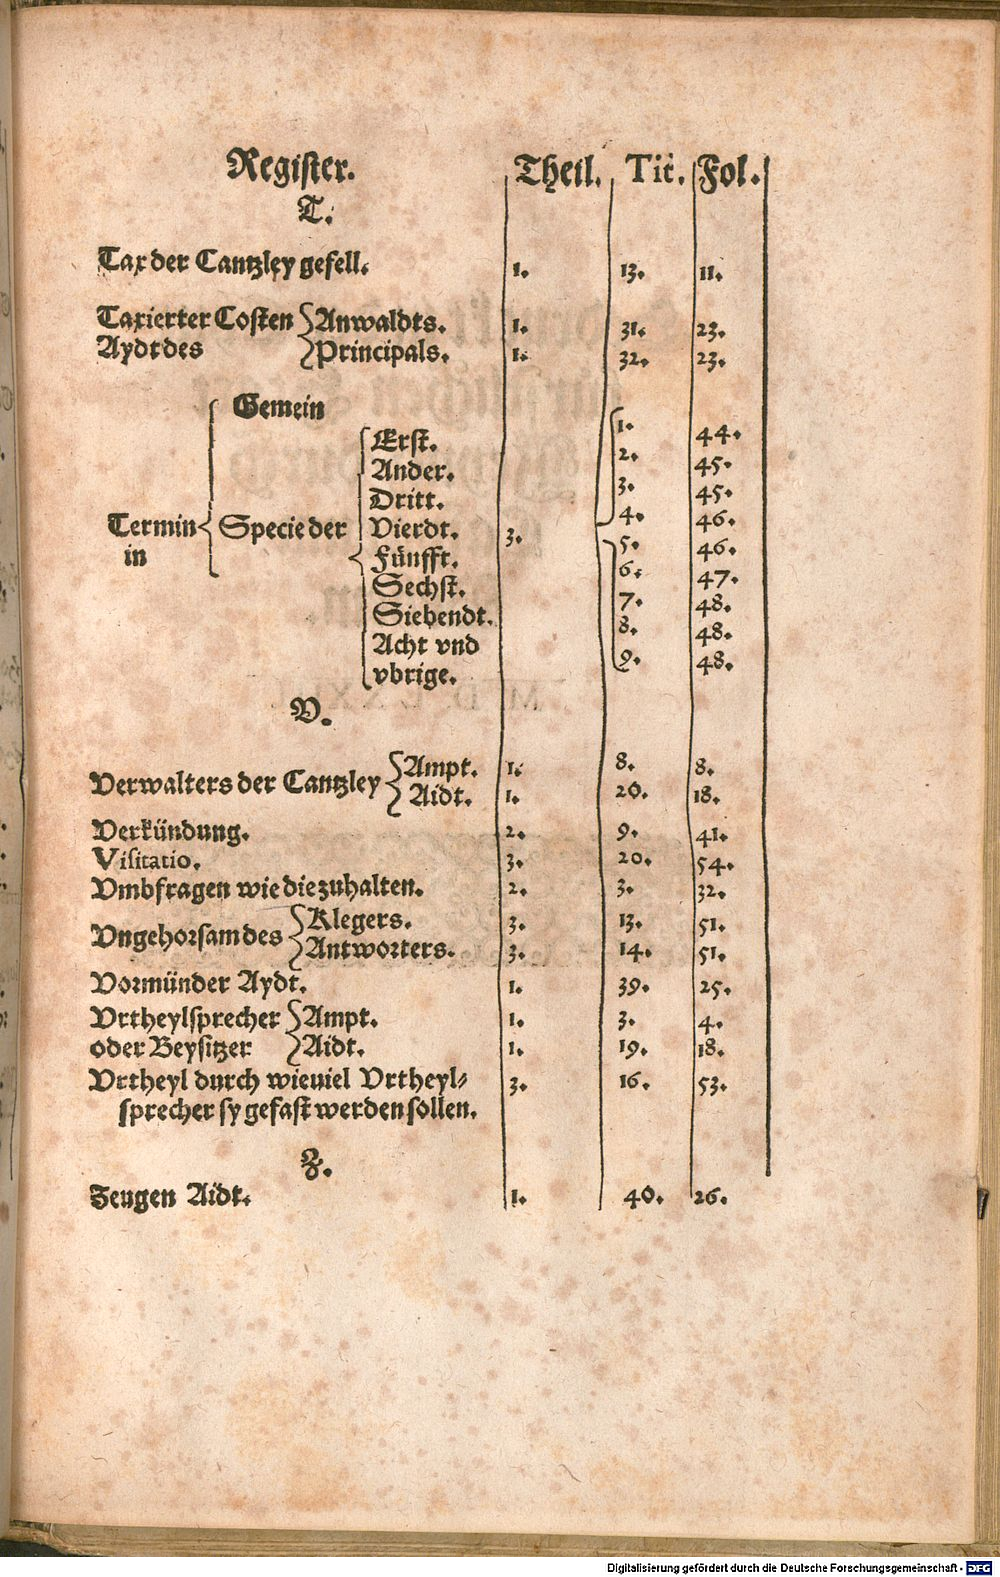 Register. Theil. Tit. Fol.
T.
Tax der Cantzley gefell. 1. 13. 11.
Taxierter Costen Anwaldts. 1. 31. 23.
Aydt des Principals. 1. 32. 23.
Gemein
Erst. 1. 44.
Ander. 2. 45.
Dritt. 3. 45.
Termin Specie der Vierdt. 3. 4. 46.
in Fünfft. 5. 46.
Sechst. 6. 47.
Siebendt. 7. 48.
Acht vnd 8. 48.
vbrige. 9. 48.
V.
Verwalters der Cantzley Ampt. 1. 8. 8.
Aidt. 1. 20. 18.
Verkündung. 2. 9. 41.
Visitatio. 3. 20. 54.
Vmbfragen wie die zuhalten. 2. 3. 32.
Vngehorsam des Klegers. 3. 13. 51.
Antworters. 3. 14. 51.
Vormünder Aydt. 1. 39. 25.
Vrtheylsprecher Ampt. 1. 3. 4.
oder Beysitzer Aidt. 1. 19. 18.
Vrtheyl durch wieuiel Vrtheyl⸗ 3. 16. 53.
sprecher sy gefast werden sollen.
Z.
Zeugen Aidt. 1. 40. 26.
Digitalisierung gefördert durch die Deutsche Forschungsgemeinschaft - DFG